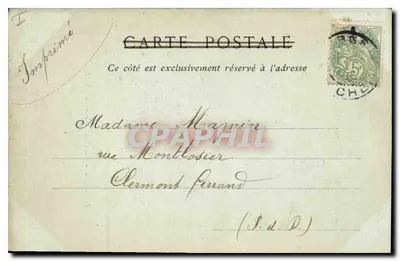 I
Imprimé
CARTE POSTALE
Ce côté est exclusivement réservé à l'adresse
5
CHE
Madame
CPAPHIL
rue Montlosier
Clermont Ferrand
(P. d. D)